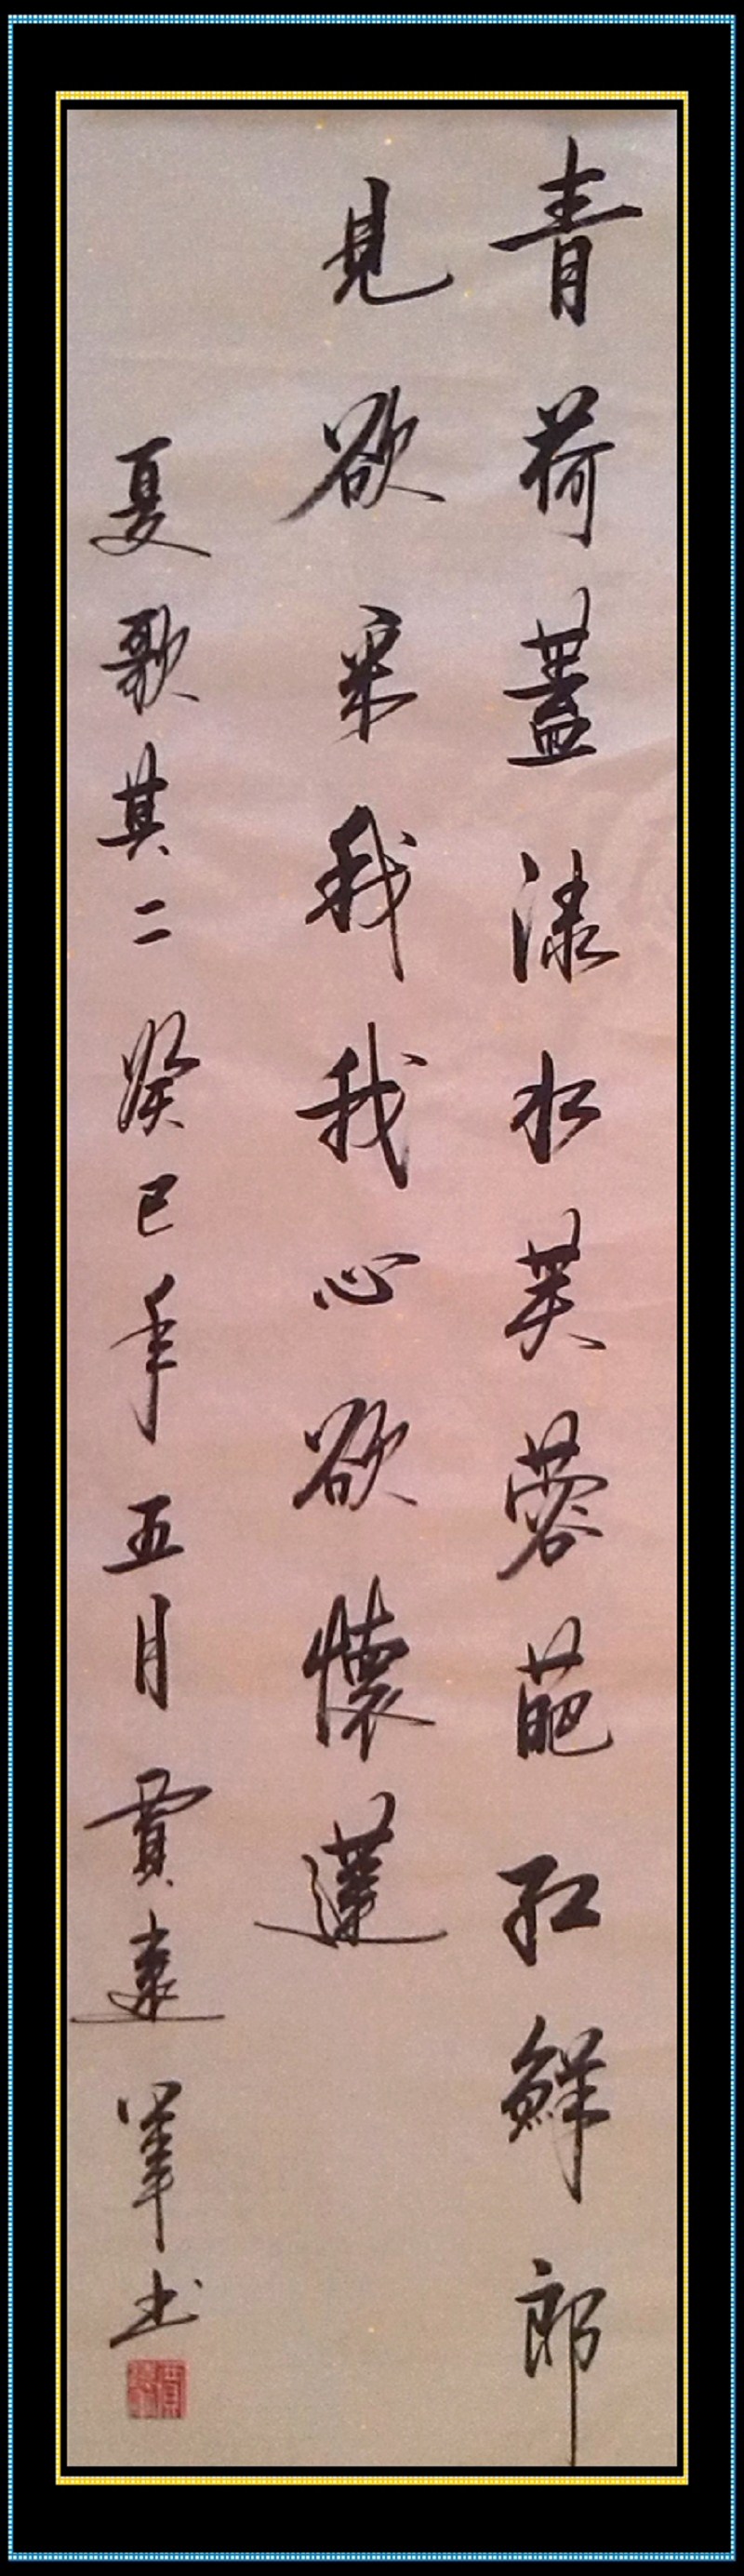 青荷蓋淥水芙蓉葩紅鮮郎
見欲采我我心欲懷蓮
夏歌其二癸巳年五月賈建軍书